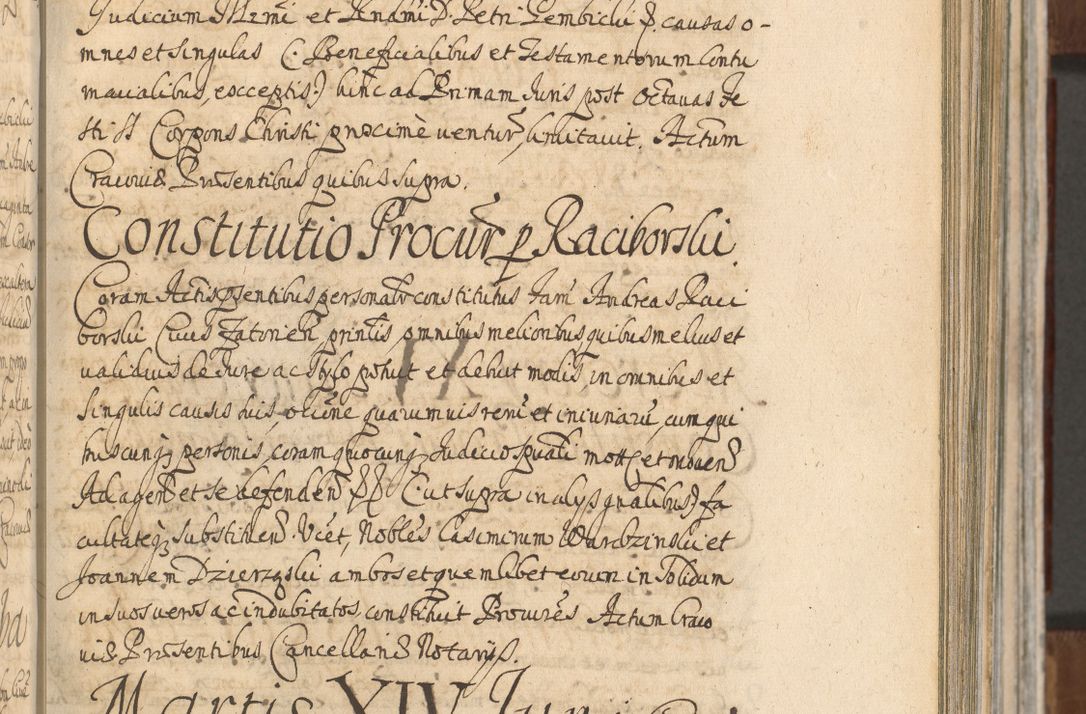 Judicium Illrmi et Rndmi D. Petri Gembicki p. causas o-
mnes et singulas (: Beneficialibus et Testamentorum Contu
macialibus, exceptis:) hinc ad Primam Juris post Octavas Fe
sti SS Corporis Christi proxime ventur, limitavit. Actum
Cracoviæ Præsentibus quibus supra.
Constitutio Procur p Raciborski.
Coram Actis psentibus personalr constitutus Fam Andreas Raci
borski Civis Zatorien princlis omnibus melioribus quibus melius et
validius de Jure ac Stylo potuit et debuit modis, in omnibus et
singulis causis suis, ocione quarumvis rerum et iniuriaru, cum qui
buscunq personis, coram quocunq Judicio spuali mot et moven
Ad agend et se defenden (: ut supra in alijs gnalibus:) fa
cultateq substituen. Vcet, Nobles Casimirum Wardzinski et
Joannem Dzierzgski ambos et quemlibet eorum in Solidum
in suos veros ac indubitatos, constituit Procures Actum Craco
viæ Præsentibus Cancellariæ Notarijs.
Martis XIV Juni